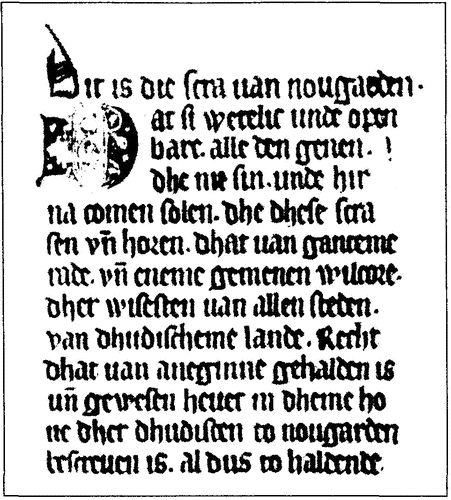 Hir is die scra uan nougarden.
Dat si wetelic unde open
bare. alle den genen.
dhe nu sin. unde hir
na comen solen. dhe dhese scra
sen vn̄ horen. dhat uan ganceme
rade. vn̄ eneme gemenen wilcore.
dher wisesten uan allen steden.
van dhudischeme lande. Recht
dhat uan aneginne gehalden is
un̄ gewesen heuet in dheme ho
ue dher dhudisten to nougarden
bescreuen is. al dus to haldende.